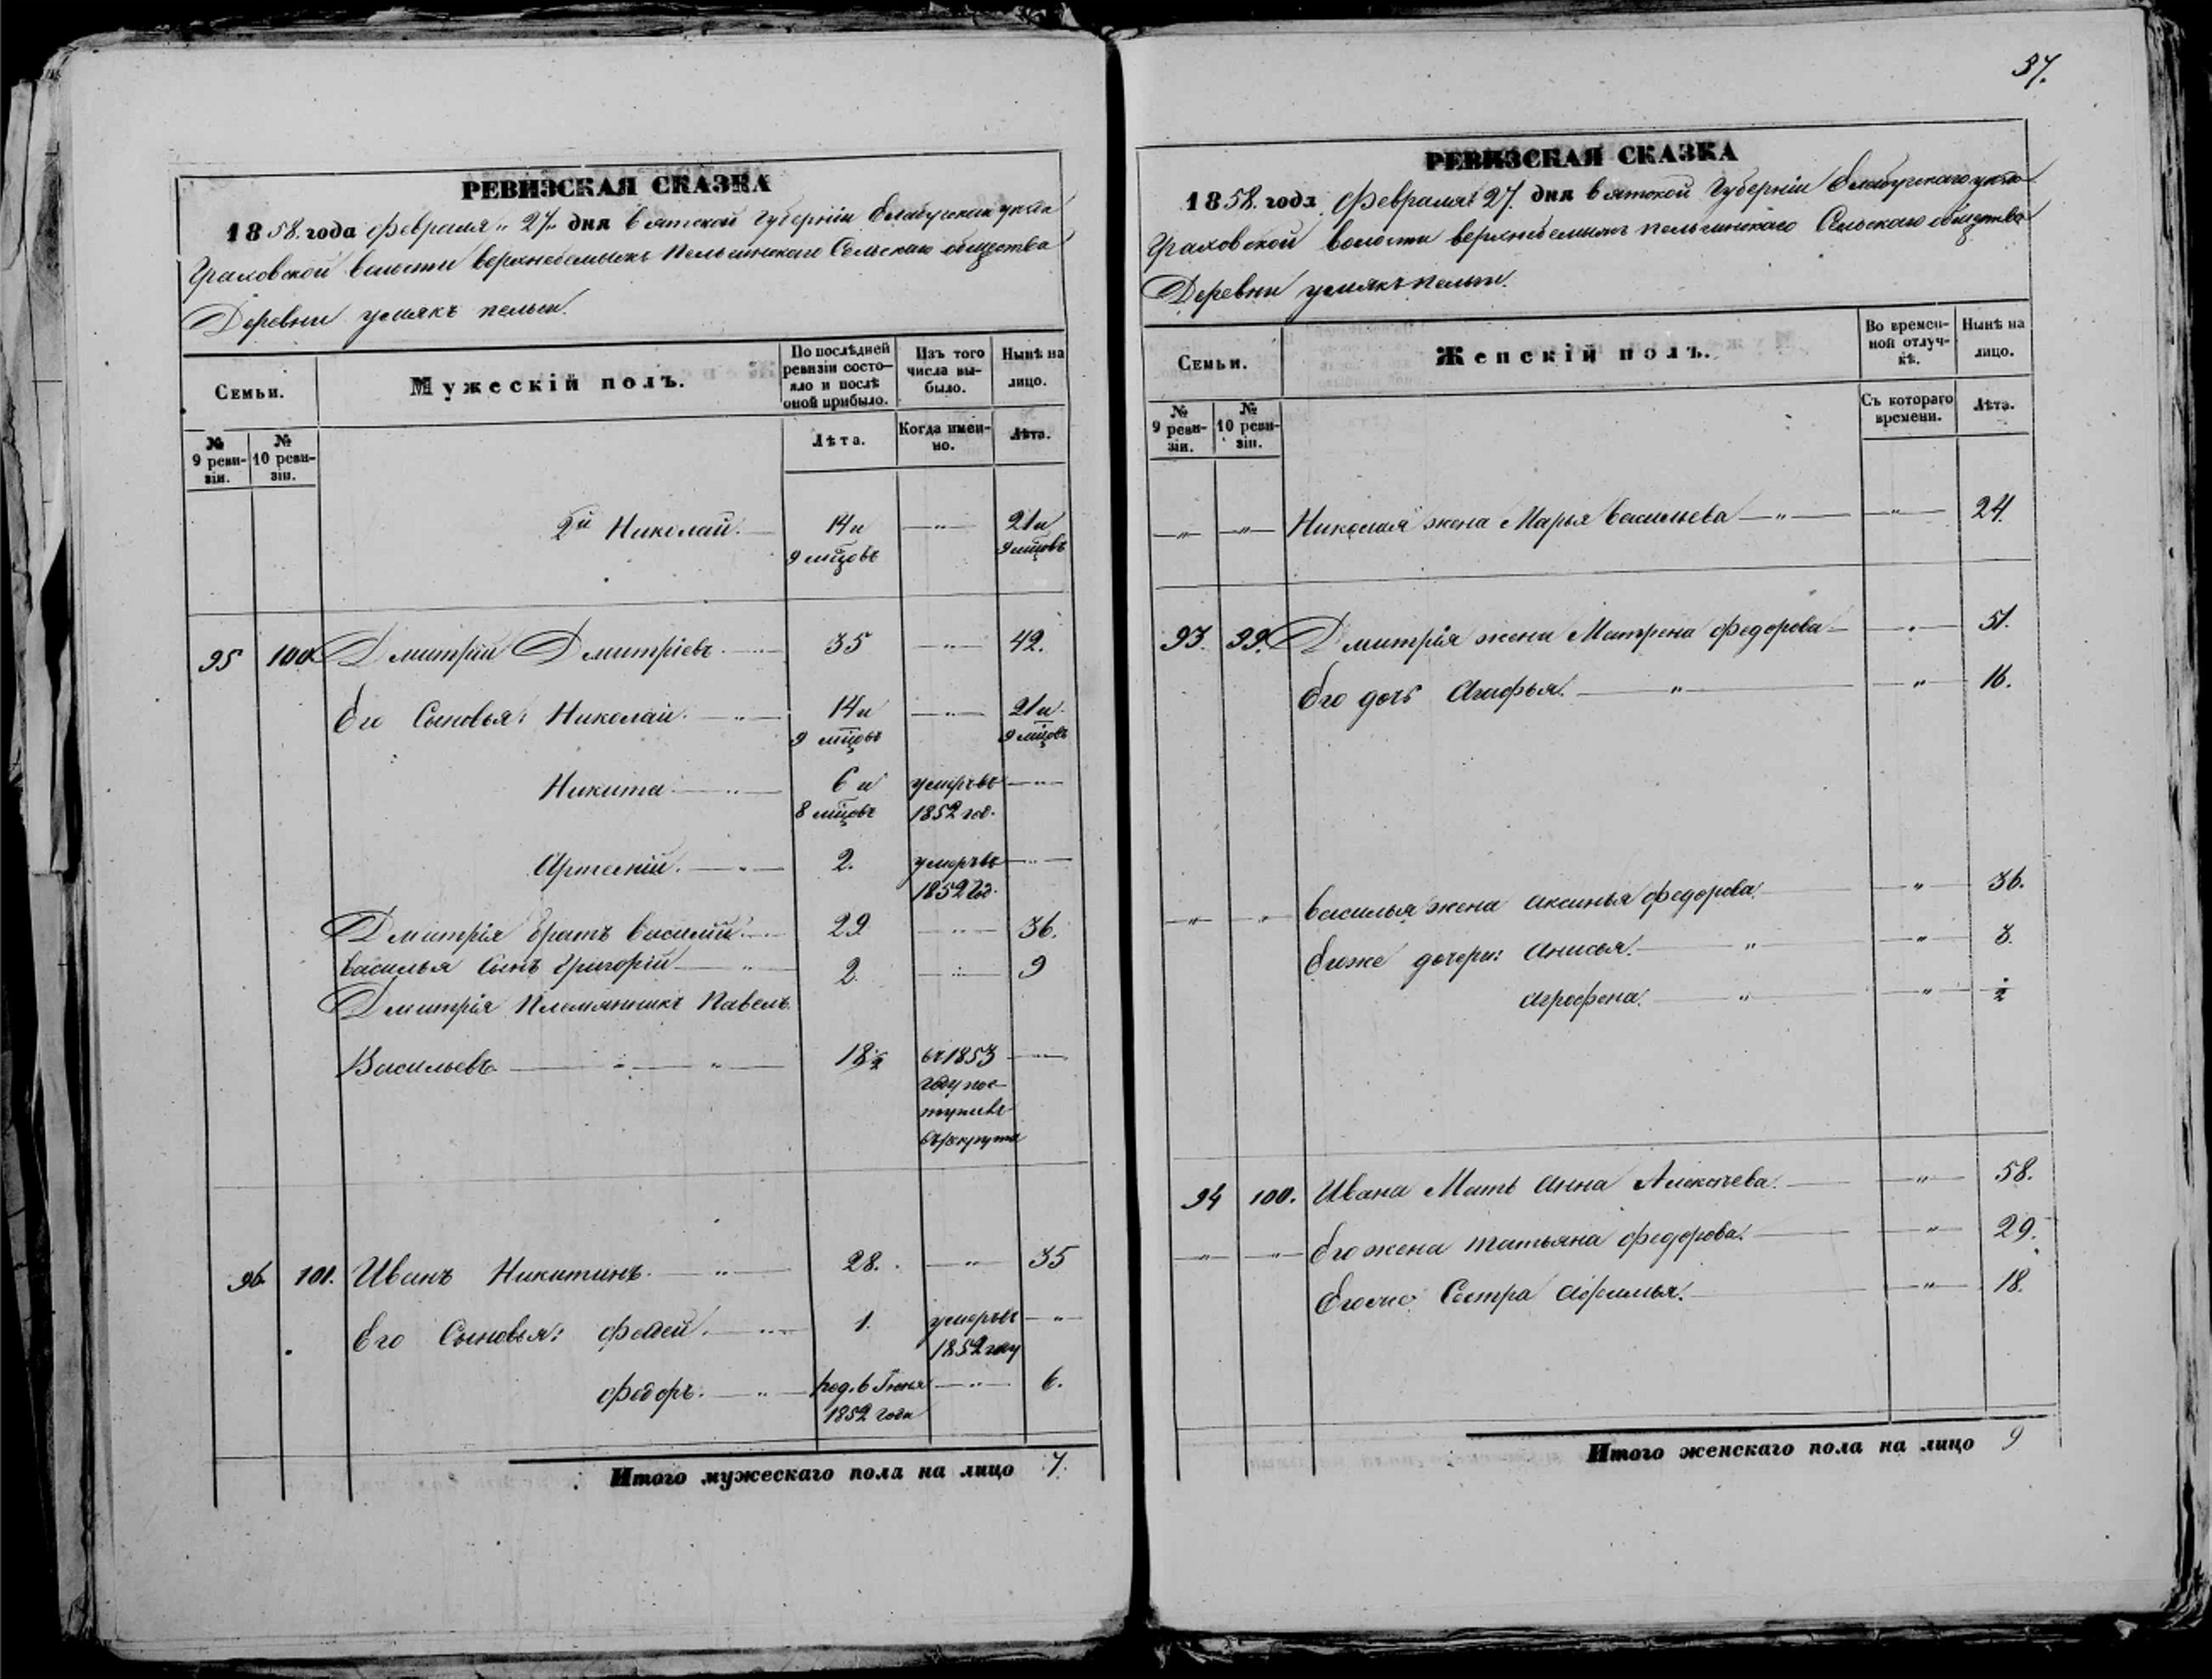 РЕВИЗСКАЯ СКАЗКА
1858. года февраля „ 27 „ дня Вятской Губерніи
Граховской волости Сельскаго общества
Деревни умякъ пельги.
Семьи.
Мужескій полъ.
По послѣдней ревизіи состо-яло и послѣ оной прибыло.
Изъ того числа вы-было.
Нынѣ на лицо.
№ 9 реви-зіи.
№ 10 реви-зіи.
Лѣта.
Когда имен-но.
Лѣта.
2й Николай. 14 и 9 мцовъ — „ — 21 и 9 мцовъ
95 100 Дмитрій Дмитріевъ. 35 — „ — 42.
Его Сыновья: Николай. 14 и 9 мцовъ — „ — 21 и 9 мцовъ
Никита 6 и 8 мцовъ умеръ въ 1852 год. — „ —
2. умеръ въ 1852 год. — „ —
Дмитрія братъ Василій 29 — „ — 36.
Василья Сынъ Григорій — „ — 2. — „ — 9
Дмитрія Племянникъ Павелъ
Васильевъ — „ — „ — 18½ въ 1853 году пос-тупилъ въ рекрута — „ —
96. 101. Иванъ Никитинъ. — „ — 28. — „ — 35
Его Сыновья: 1. умеръ въ 1852 году — „ —
Федоръ. — „ — род. въ Іюня 1852 года — „ — 6.
Итого мужескаго пола на лицо 7.
37.
РЕВИЗСКАЯ СКАЗКА
1858. года Февраля 27. дня Вятской Губерніи
Граховской волости Сельскаго общества
Деревни умякъ пельги.
Семьи.
Женскій полъ.
Во времен-ной отлуч-кѣ.
Нынѣ на лицо.
№ 9 реви-зіи.
№ 10 реви-зіи.
Съ котораго времени.
Лѣта.
— „ — — „ — Николая жена Марья Васильева — „ — — „ — 24.
93. 99. Дмитрія жена Матрена Федорова — „ — 51.
Его дочь Агафья. — „ — — „ — 16.
— „ — — „ — Василья жена Аксинья Федорова. — „ — 36.
Его же дочери: Анисья. — „ — — „ — 3.
Агрофена. — „ — — „ — ½
94 100. Ивана Мать Анна — „ — 58.
— „ — — „ — Его жена Татьяна Федорова. — „ — 29.
Сестра — „ — 18.
Итого женскаго пола на лицо 9